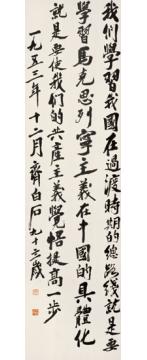 我们學習我國在過渡時期的總路线就是要
學習馬克思列寧主義在中國的具體化
就是要使我们的共產主義覺悟提高一步
一九五三年十二月齊白石九十三歲